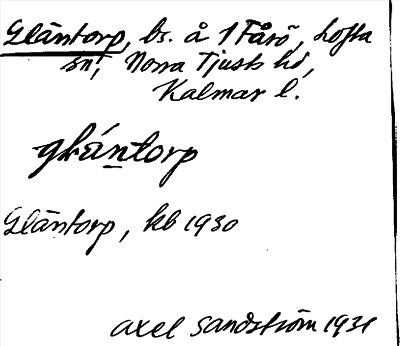 Gläntorp, bs. å 1 Fårö, Lofta
sn, Norra Tjusts hd,
Kalmar l.
gläntorp
Gläntorp, kb 1930
Axel Sandström 1931